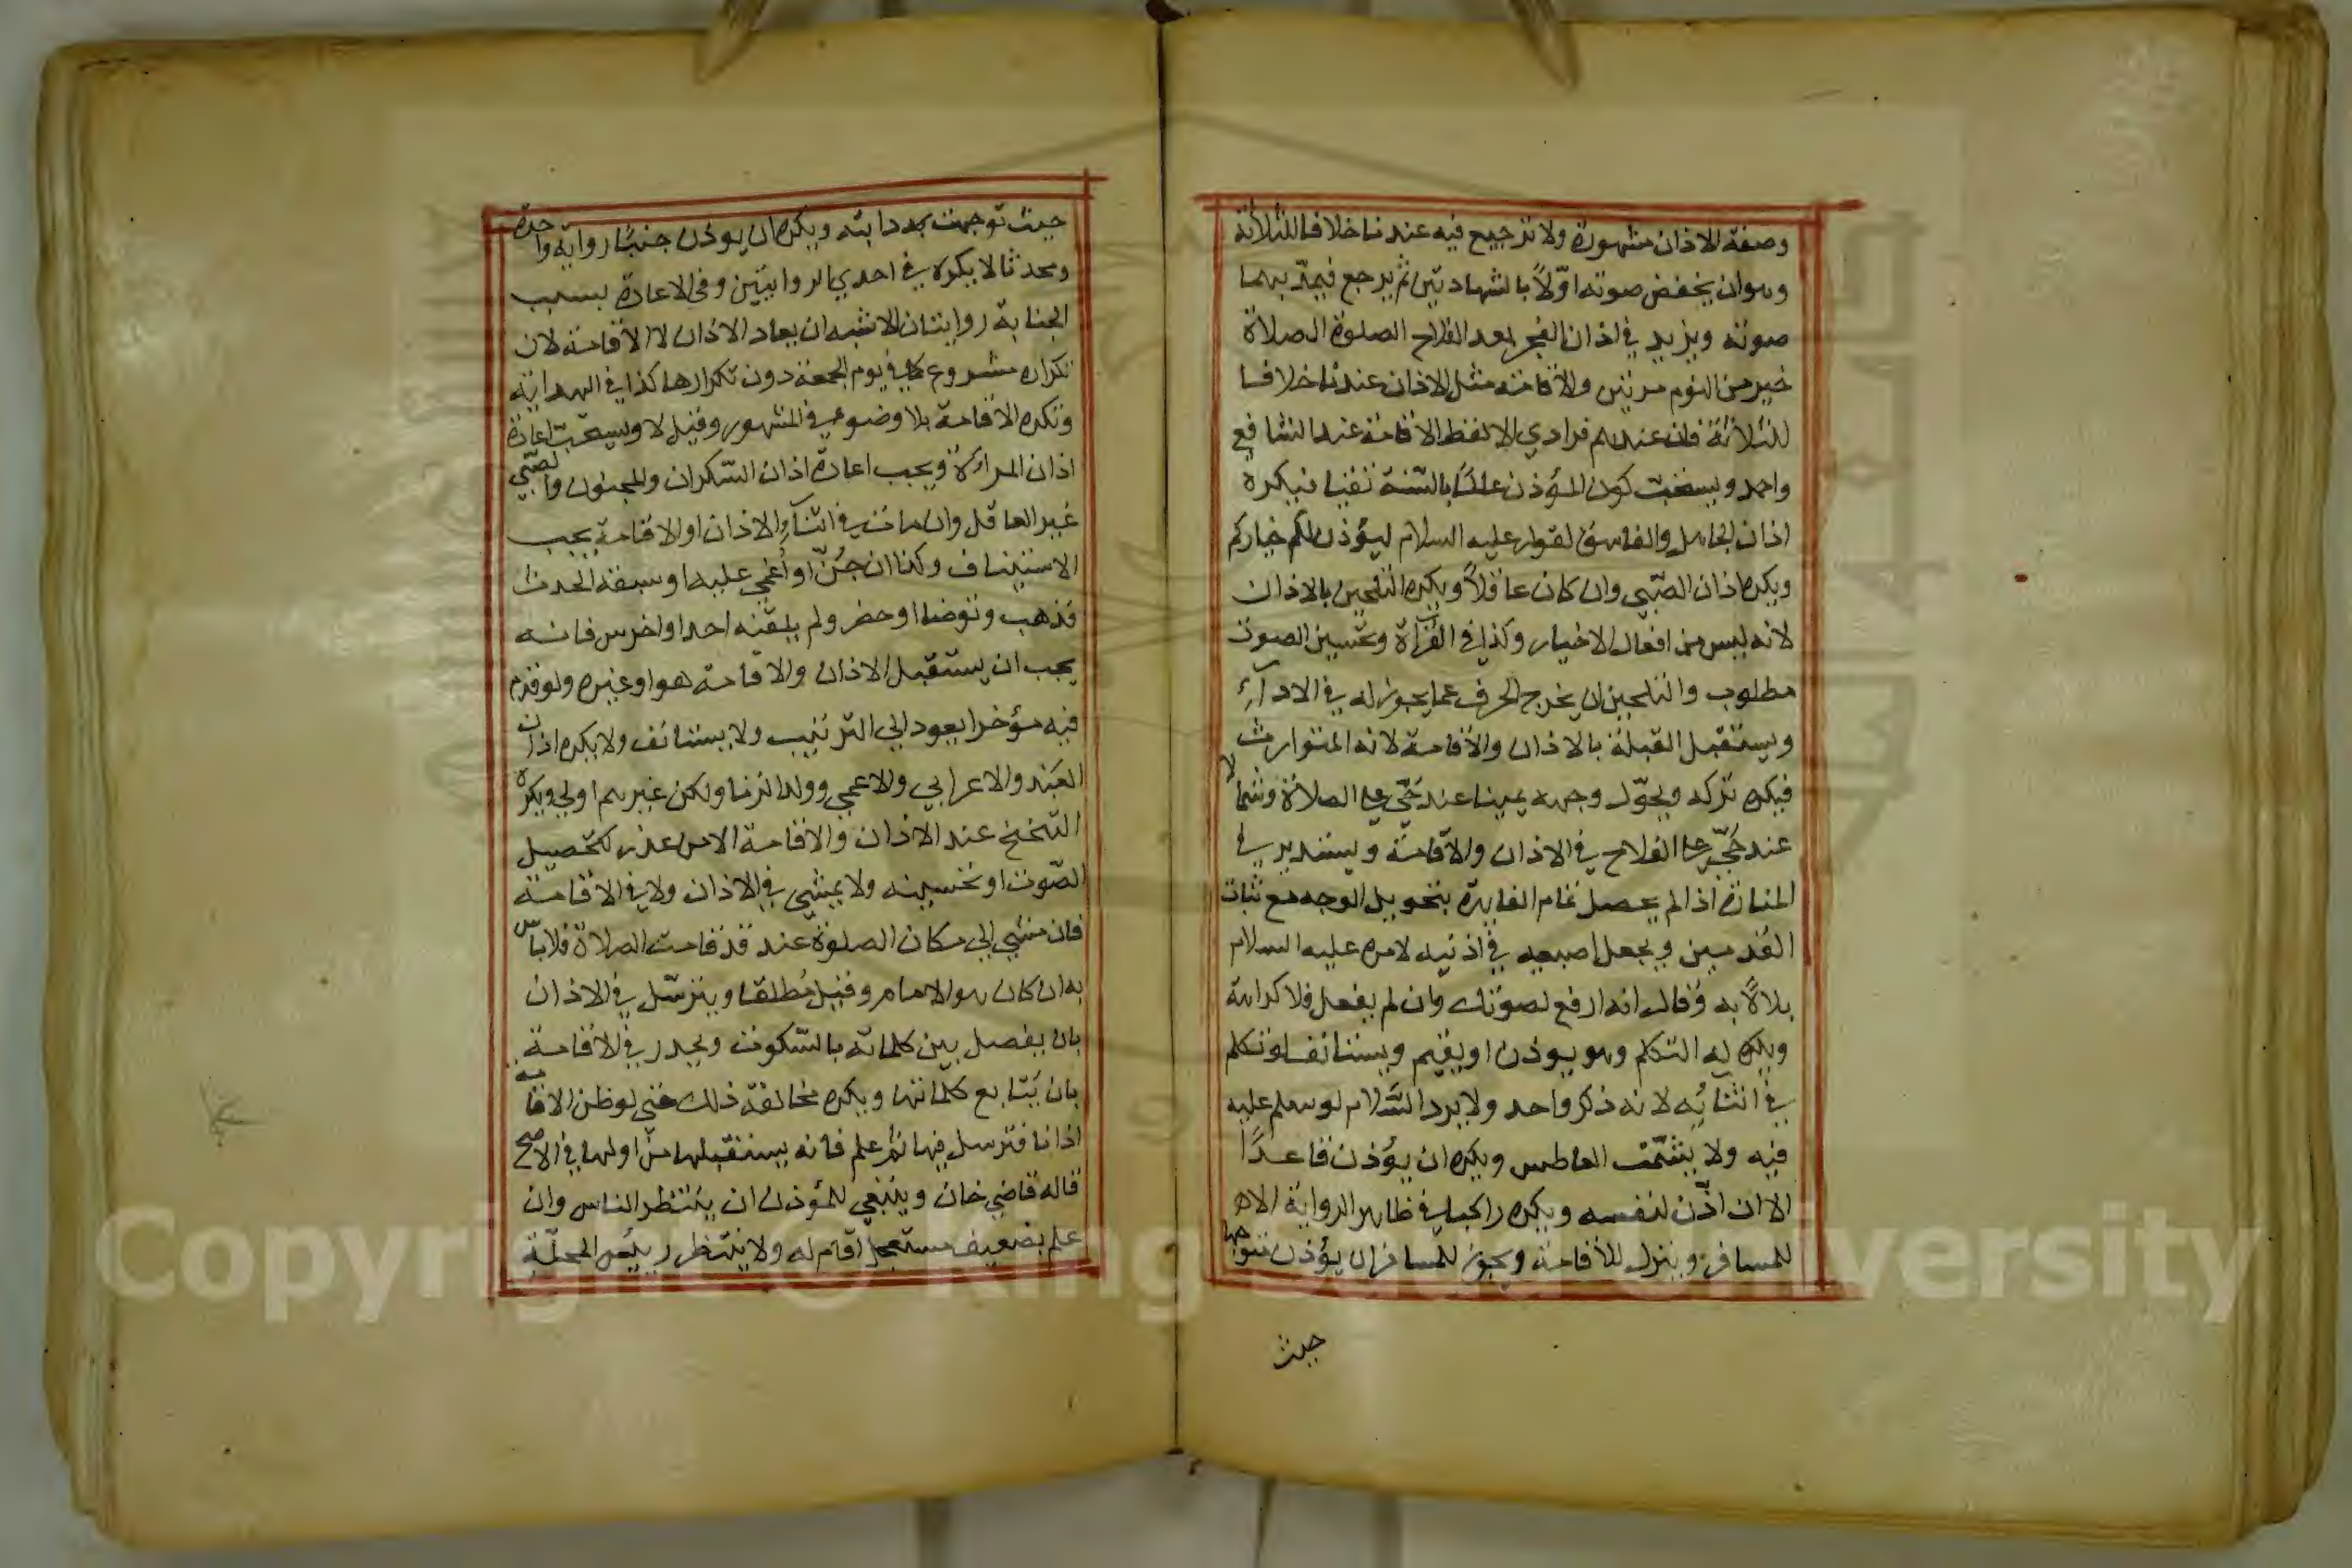 وصفة الاذان مشهورة ولا ترجيع فيه عندنا خلافا للثلاثة
وهو ان يخفض صوته اوّلاً بالشهادتين ثم يرجع فيمدّ بهما
صوته ويزيد في اذان الفجر بعد الفلاح الصلوة الصلاة
خير من النوم مرتين والاقامة مثل الاذان عندنا خلافا
للثلاثة فان عندهم فرادي الا لفظ الاقامة عند الشافع
واحد ويستحبّ كون المؤذن عالما بالسّنة تقيا فيكره
اذان الجاهل والفاسق لقوله عليه السلام ليؤذن لكم خياركم
ويكره اذان الصّبي وان كان عاقلاً ويكره التلحين بالاذان
لانه ليس من افعال الاخيار وكذا في القرآة وتحسين الصوت
مطلوب والتلحين ان يخرج الحرف عما يجوز له في الادآء
ويستقبل القبلة بالاذان والاقامة لانه المتوارث
فيكره تركه ويحوّل وجهه يمينا عند حَيّ على الصلاة وشمالا
عند حَيّ على الفلاح في الاذان والاقامة ويستدير في
المنارة اذا لم يحصل تمام الفايدة بتحويل الوجه مع ثبات
القدمين ويجعل اصبعيه في اذنيه لامره عليه السلام
بلالاً به وقال انه ارفع لصوتك وان لم يفعل فلا كراهة
ويكره له التكلم وهو يوذن او يقيم ويستانف لو تكلم
في اثنائه لانه ذكر واحد ولا يرد السّلام لو سلم عليه
فيه ولا يشمّت العاطس ويكره ان يؤذن قاعدًا
الا ان اذّن لنفسه ويكره راكبا في ظاهر الرواية الا
للمسافر وينزل للاقامة ويجوز للمسافر ان يؤذن متوجها
حيث
حيث توجهت به دابته ويكره ان يوذن جنبًا رواية واحدة
ومحدثا لا يكره في احدي الروايتين وفي الاعادة بسبب
الجنابة روايتان الاشبه ان يعاد الاذان لا الاقامة لان
تكراره مشروع كما في يوم الجمعة دون تكرارها كذا في الهداية
وتكره الاقامة بلا وضوء في المشهور وقيل لا ويستحبّ اعادة
اذان المراة ويجب اعادة اذان السّكران والمجنون والصّبي
غير العاقل وان مات في اثنآء الاذان او الاقامة يجب
الاستيناف وكذا ان جُنّ او اُغمي عليه او سبقه الحدث
فذهب وتوضا او حضر ولم يلقنه احد او اخرس فانه
يجب ان يستقبل الاذان والاقامة هو او غيره ولو قدم
فيه مؤخرا يعود الي الترتيب ولا يستانف ولا يكره اذان
العَبْد والاعرابي والاعمي وولد الزنا ولكن غيرهم اولي ويكره
التنحنح عند الاذان والاقامة الا من عذر كتحصيل
الصّوت او تحسينه ولا يمشي في الاذان ولا في الاقامة
فان مشي الي مكان الصلوة عند قد قامت الصلاة فلا باس
به ان كان هو الامام وقيل مُطلقا ويترسّل في الاذان
بان يفصل بين كلماته بالسّكوت ويحدر في الاقامة
بان يُتابع كلماتها ويكره مخالفة ذلك حتي لو ظن الاقامة
اذانا فترسل فيها ثم علم فانه يستقبلها من اولها في الاصح
قاله قاضي خان وينبغي للمؤذن ان ينتظر الناس وان
علم بضعيف مستعجل اقام له ولا ينتظر رييس المحلّة
Copyright © King Saud University